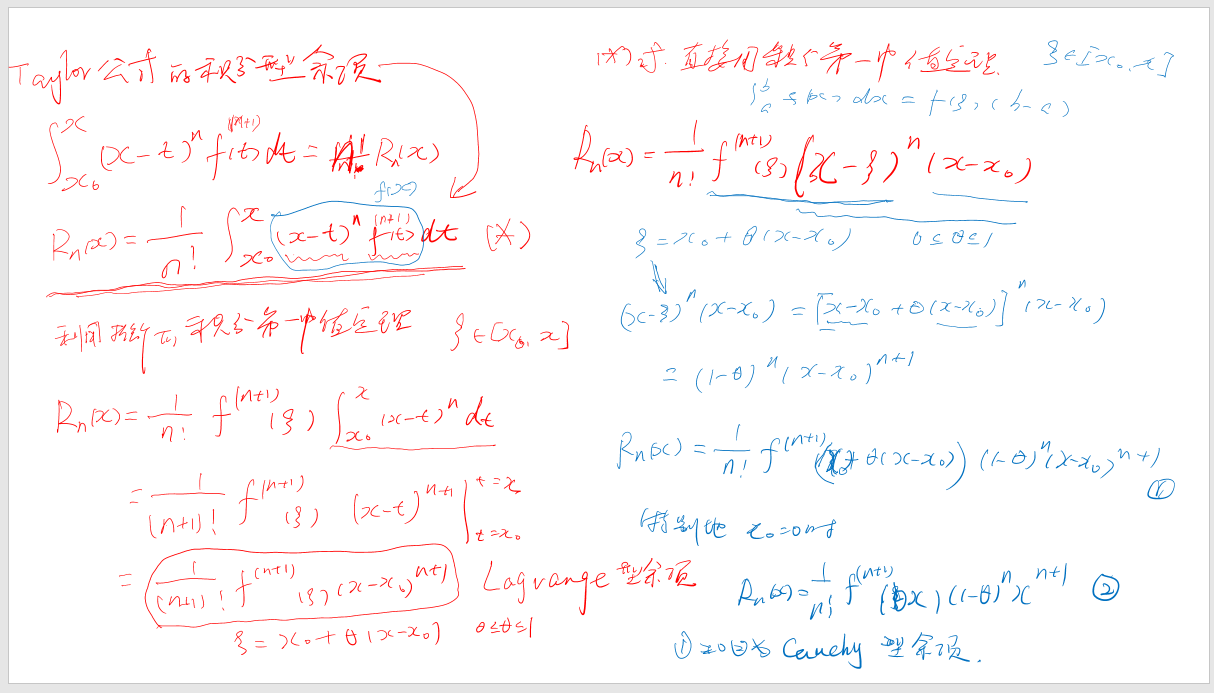 Taylor公式的积分型余项
∫_{x₀}^{x} (x-t)^n f^{(n+1)}(t) dt = n! R_n(x)
f(x)
R_n(x) = \frac{1}{n!} ∫_{x₀}^{x} (x-t)^n f^{(n+1)}(t) dt (*)
利用推广的积分第一中值定理 ξ∈[x₀, x]
R_n(x) = \frac{1}{n!} f^{(n+1)}(ξ) ∫_{x₀}^{x} (x-t)^n dt
= \frac{1}{(n+1)!} f^{(n+1)}(ξ) (x-t)^{n+1} |_{t=x₀}^{t=x}
= \frac{1}{(n+1)!} f^{(n+1)}(ξ) (x-x₀)^{n+1} Lagrange型余项
ξ = x₀ + θ(x-x₀) 0≤θ≤1
(*)式 直接用积分第一中值定理 ξ∈[x₀, x]
∫_a^b f(x) dx = f(ξ)(b-a)
R_n(x) = \frac{1}{n!} f^{(n+1)}(ξ) (x-ξ)^n (x-x₀)
ξ = x₀ + θ(x-x₀) 0≤θ≤1
(x-ξ)^n (x-x₀) = [x-x₀ + θ(x-x₀)]^n (x-x₀)
= (1-θ)^n (x-x₀)^{n+1}
R_n(x) = \frac{1}{n!} f^{(n+1)}(x₀+θ(x-x₀)) (1-θ)^n (x-x₀)^{n+1} ①
特别地 x₀=0时
R_n(x) = \frac{1}{n!} f^{(n+1)}(θx) (1-θ)^n x^{n+1} ②
①和②为 Cauchy 型余项.